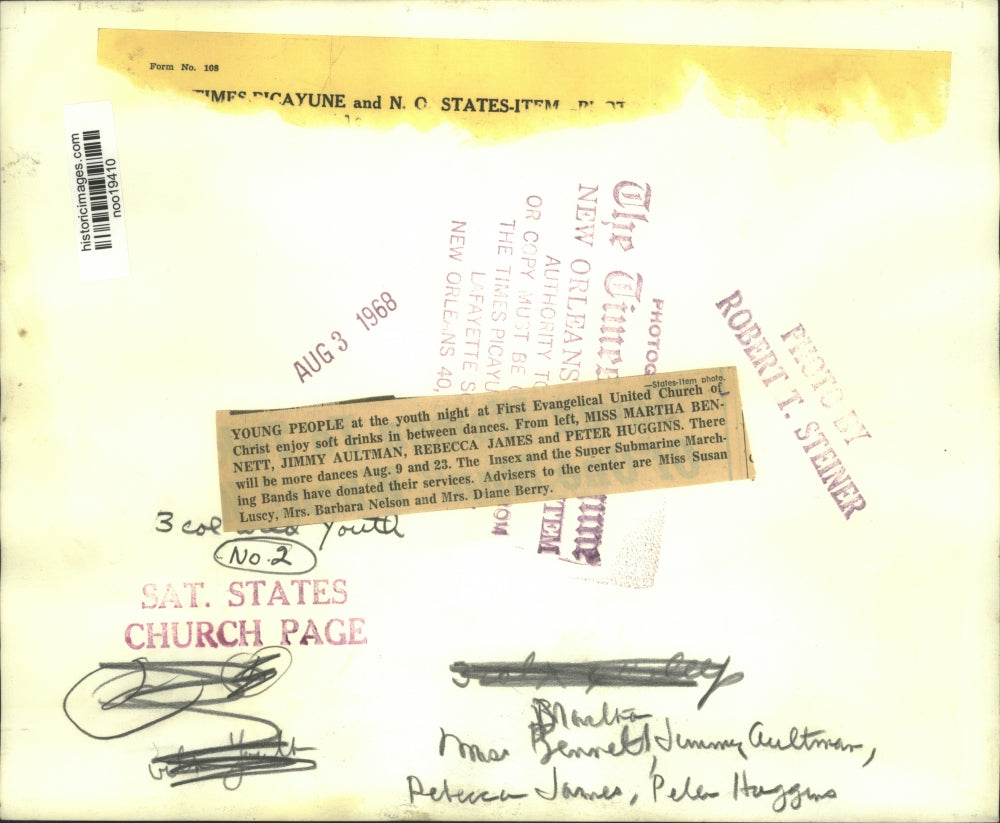 Form No. 108
TIMES-PICAYUNE and N. O. STATES-ITEM
historicimages.com
noo19410
The Times
NEW ORLEANS
PHOTOG
AUTHORITY TO
OR COPY MUST BE
THE TIMES PICAYU
LAFAYETTE S
NEW ORLEANS 40,
PHOTO BY
ROBERT T. STEINER
AUG 3 1968
—States-Item photo.
YOUNG PEOPLE at the youth night at First Evangelical United Church of
Christ enjoy soft drinks in between dances. From left, MISS MARTHA BEN-
NETT, JIMMY AULTMAN, REBECCA JAMES and PETER HUGGINS. There
will be more dances Aug. 9 and 23. The Insex and the Super Submarine March-
ing Bands have donated their services. Advisers to the center are Miss Susan
Luscy, Mrs. Barbara Nelson and Mrs. Diane Berry.
3 col Youth
No. 2
SAT. STATES
CHURCH PAGE
Martha
Miss Bennett, Jimmy Aultman,
Rebecca James, Peter Huggins